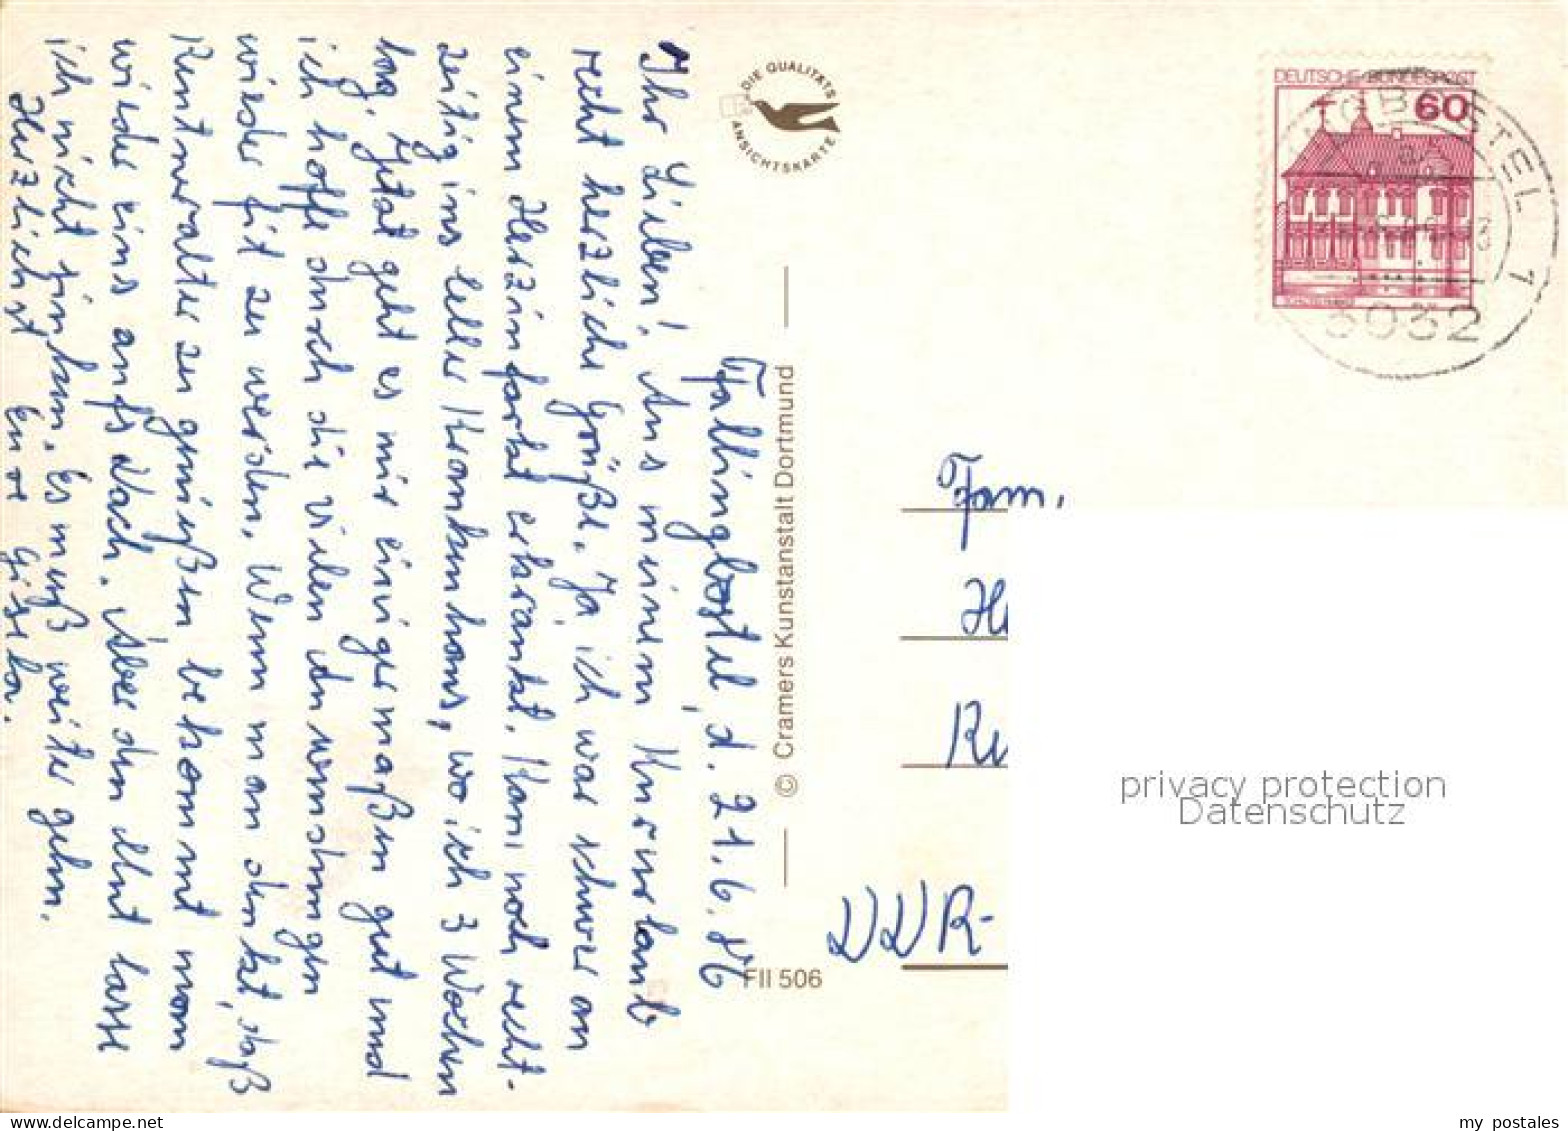 Fallingbostel, d. 21.6.86
Ihr Lieben! Aus meinem Kururlaub
recht herzliche Grüße. Ja ich war schwer an
einem Herzinfarkt erkrankt. Kam noch recht-
zeitig ins Celler Krankenhaus, wo ich 3 Wochen
lag. Jetzt geht es mir einigermaßen gut und
ich hoffe durch die vielen Anwendungen
wieder fit zu werden. Wenn man denkt, daß
Rentneralter zu genießen bekommt man
wieder eins aufs Dach. Aber den Mut lasse
ich nicht sinken. Es muß weiter gehen.
Herzlichst Eure Gisela.
DIE QUALITÄTS
ANSICHTSKARTE
© Cramers Kunstanstalt Dortmund
FII 506
DEUTSCHE BUNDESPOST
60
3032
Fam.
DDR-
privacy protection
Datenschutz
www.delcampe.net
my_postales